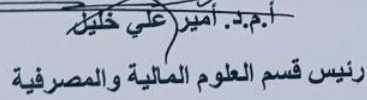 أ.م.د. أمير علي خليل
رئيس قسم العلوم المالية والمصرفية